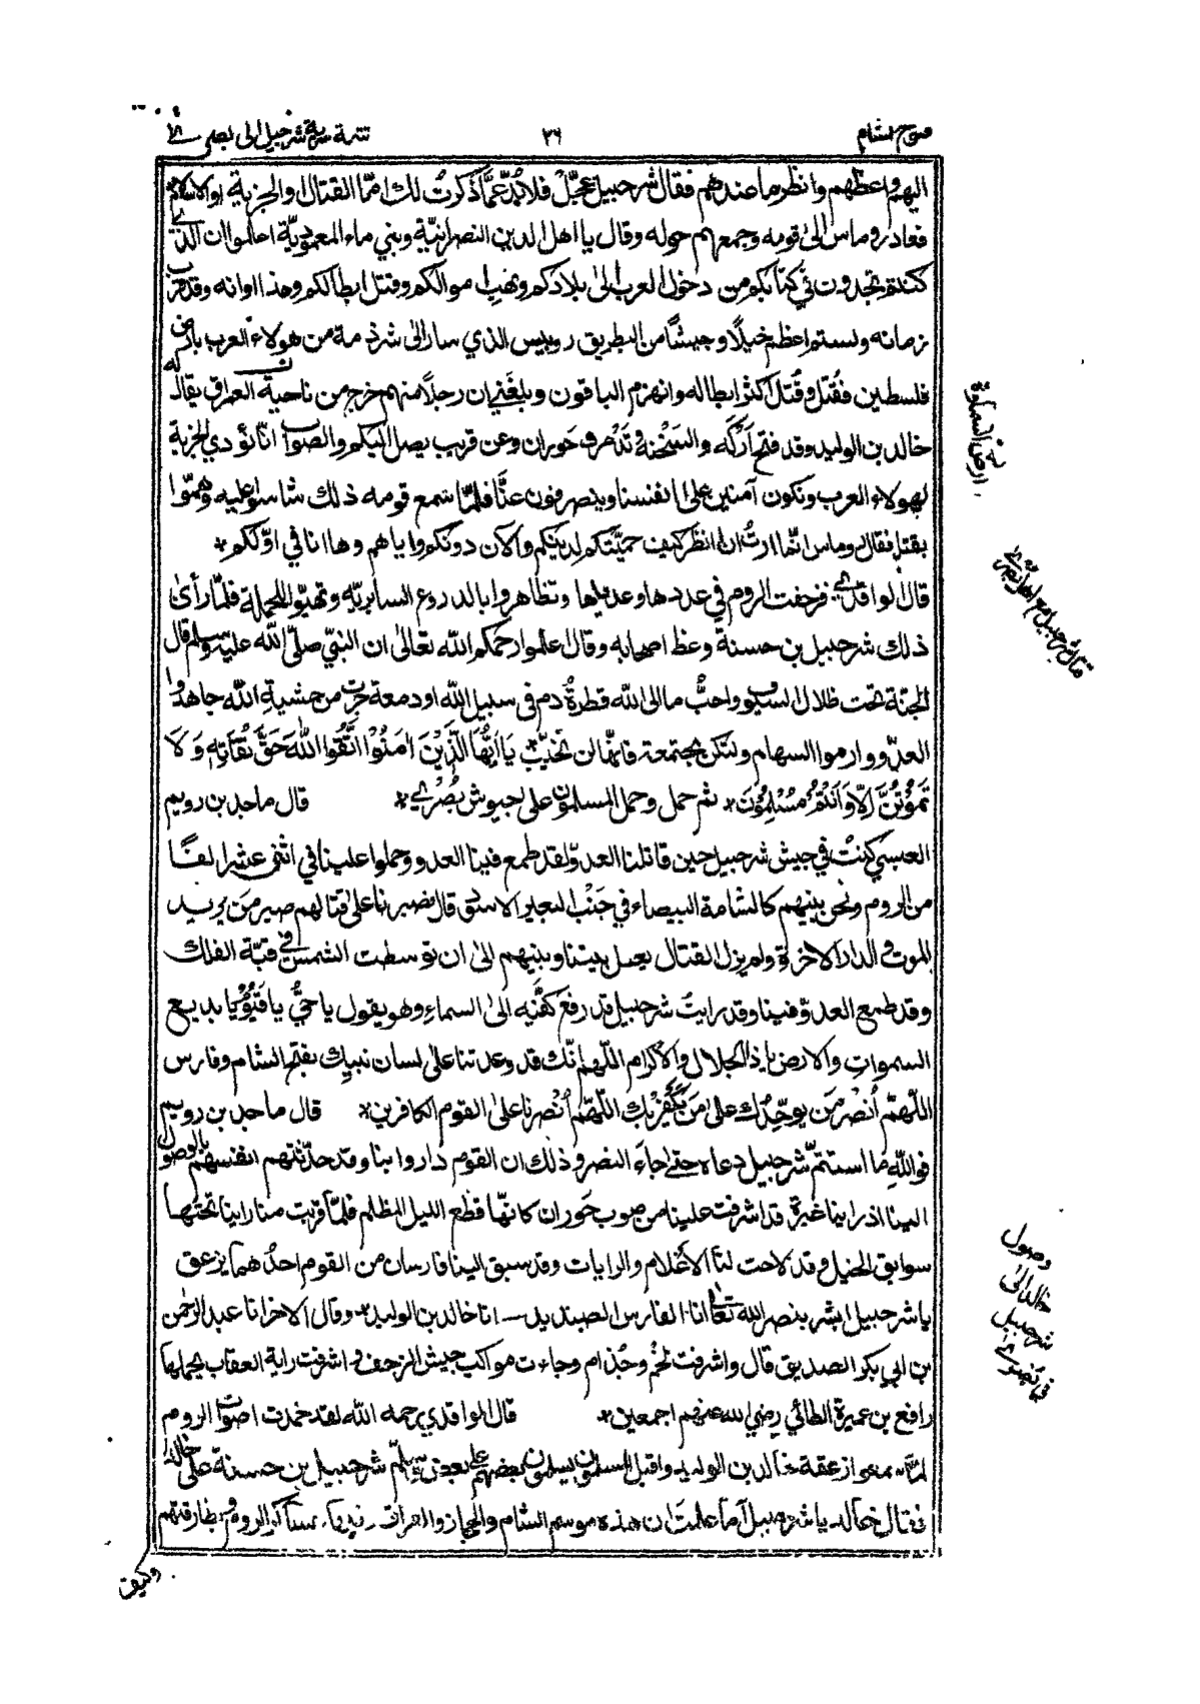 فتوح الشام
٣٦
تتمة سرية شرحبيل الى بصرى
اليهم واعظهم وانظر ما عندهم فقال شرحبيل عجّل فلا بُدّ عمّا ذكرتُ لك امّا القتال او الجزية او الاسلام
فعاد روماس الى قومه وجمعهم حوله وقال يا اهل الدين النصرانيّة وبني ماء المعموديّة اعلموا ان الذي
كنتم تجدون في كتابكم من دخول العرب الى بلادكم ونهب اموالكم وقتل ابطالكم وهذا اوانه وقد قرب
زمانه ولستم اعظم خيلًا وجيشًا من البطريق روبيس الذي سار الى شرذمة من هولاء العرب بارض
فلسطين فقُتل وقُتل اكثر ابطاله وانهزم الباقون وبلغني ان رجلًا منهم خرج من ناحية العراق يقال له
خالد بن الوليد وقد فتح اركه والسخنة وتدمر وحوران وعن قريب يصل اليكم والصواب انّا نؤدي الجزية
لهولاء العرب ونكون آمنين على انفسنا وينصرفون عنّا فلمّا سمع قومه ذلك شاسوا عليه وهمّوا
بقتله فقال روماس انّما اردتُ ان انظر كيف حميّتكم لدينكم والآن دونكم واياهم وها انا في اوّلكم *
قال الواقدي فزحفت الروم في عددها وعديدها وتظاهروا بالدروع السابريّه وتهيّوا للحملة فلمّا رأى
ذلك شرحبيل بن حسنة وعظ اصحابه وقال اعلموا رحمكم الله تعالى ان النبيّ صلّى الله عليه وسلم قال
الجنة تحت ظلال السيوف واحبُّ ما الى الله قطرةُ دم في سبيل الله او دمعة جرت من خشية الله جاهدوا
العدوّ وارموا السهام ولتكن مجتمعة فانّها لن تخيّب يَا اَيُّهَا الَّذِيْنَ اٰمَنُوْا اتَّقُوا اللّٰهَ حَقَّ تُقَاتِهٖ وَلَا
تَمُوْتُنَّ اِلَّا وَاَنْتُمْ مُسْلِمُوْنَ * ثم حمل وحمل المسلمون على جيوش بُصْرى * قال ماجد بن رويم
العبسي كنتُ في جيش شرحبيل حين قاتلنا العدوّ لقد طمع فينا العدو وحملوا علينا في اثنى عشر الفًا
من الروم ونحن بينهم كالشامة البيضاء في جَنْب البعير الاسود قال فصبرنا على قتالهم صبر مَن يريد
الموت والدار الاخرة ولم يزل القتال يعمل بيننا وبينهم الى ان توسطت الشمس في قبّة الفلك
وقد طمع العدوّ فينا وقد رايتُ شرحبيل قد رفع كفّيه الى السماء وهو يقول يا حيُّ يا قيّومُ يا بديع
السموات والارض يا ذا الجلال والاكرام اللّٰهم انّك قد وعدتنا على لسان نبيك بفتح الشام وفارس
اللّٰهمّ اُنصُر مَن يوحّدك على مَن يَّكفُر بك اللّٰهمّ اُنْصرنا على القوم الكافرين * قال ماجد بن رويم
فوالله ما استتمّ شرحبيل دعاه حتى جاءَ النصر وذلك ان القوم داروا بنا وقد حدّثتهم انفسهم بالوصول
الينا اذ راينا غبرة قد اشرفت علينا من صوب حَوران كانّها قطع الليل المظلم فلمّا قربت منا راينا تحتها
سوابق الخيل وقد لاحت لنا الاَعلام والرايات وقد سبق الينا فارسان من القوم احدُهما يزعق
يا شرحبيل ابشر بنصر الله تعالى انا الفارس الصنديد انا خالد بن الوليد * وقال الاخر انا عبد الرحمٰن
بن ابي بكر الصديق قال واشرفت لخم وجُذام وجاءت مواكب جيش الزحف واشرفت راية العقاب يحملها
رافع بن عميرة الطائي رضي الله عنهم اجمعين * قال الواقدي رحمه الله لقد خمدت اصوات الروم
لمّا سمعوا زعقة خالد بن الوليد واقبل المسلمون يسلمون بعضهم على بعض وسلّم شرحبيل بن حسنة على خالد
فقال خالد يا شرحبيل اما علمتَ ان هذه موسم الشام والحجاز والعراق وفيها عساكر الروم وبطارقتهم
وكيف
ارض السماوة
قتال شرحبيل مع اهل بصرى
وصول
خالد الى
شرحبيل
في بصرى